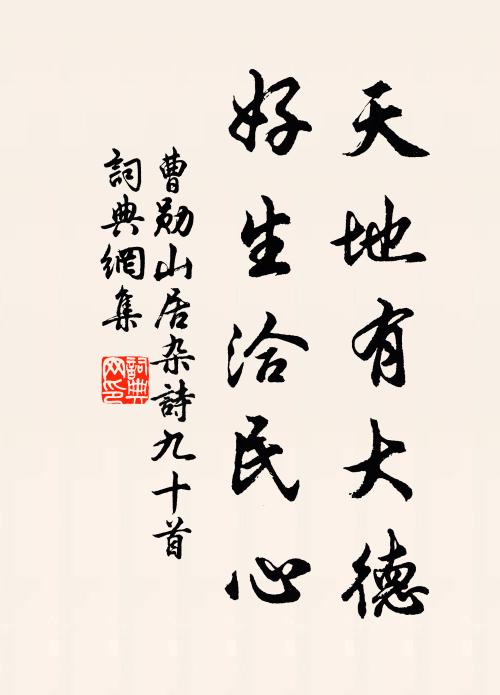 天地有大德
好生洽民心
曹勋山居杂詩九十首
詞典網集
詞典
网印